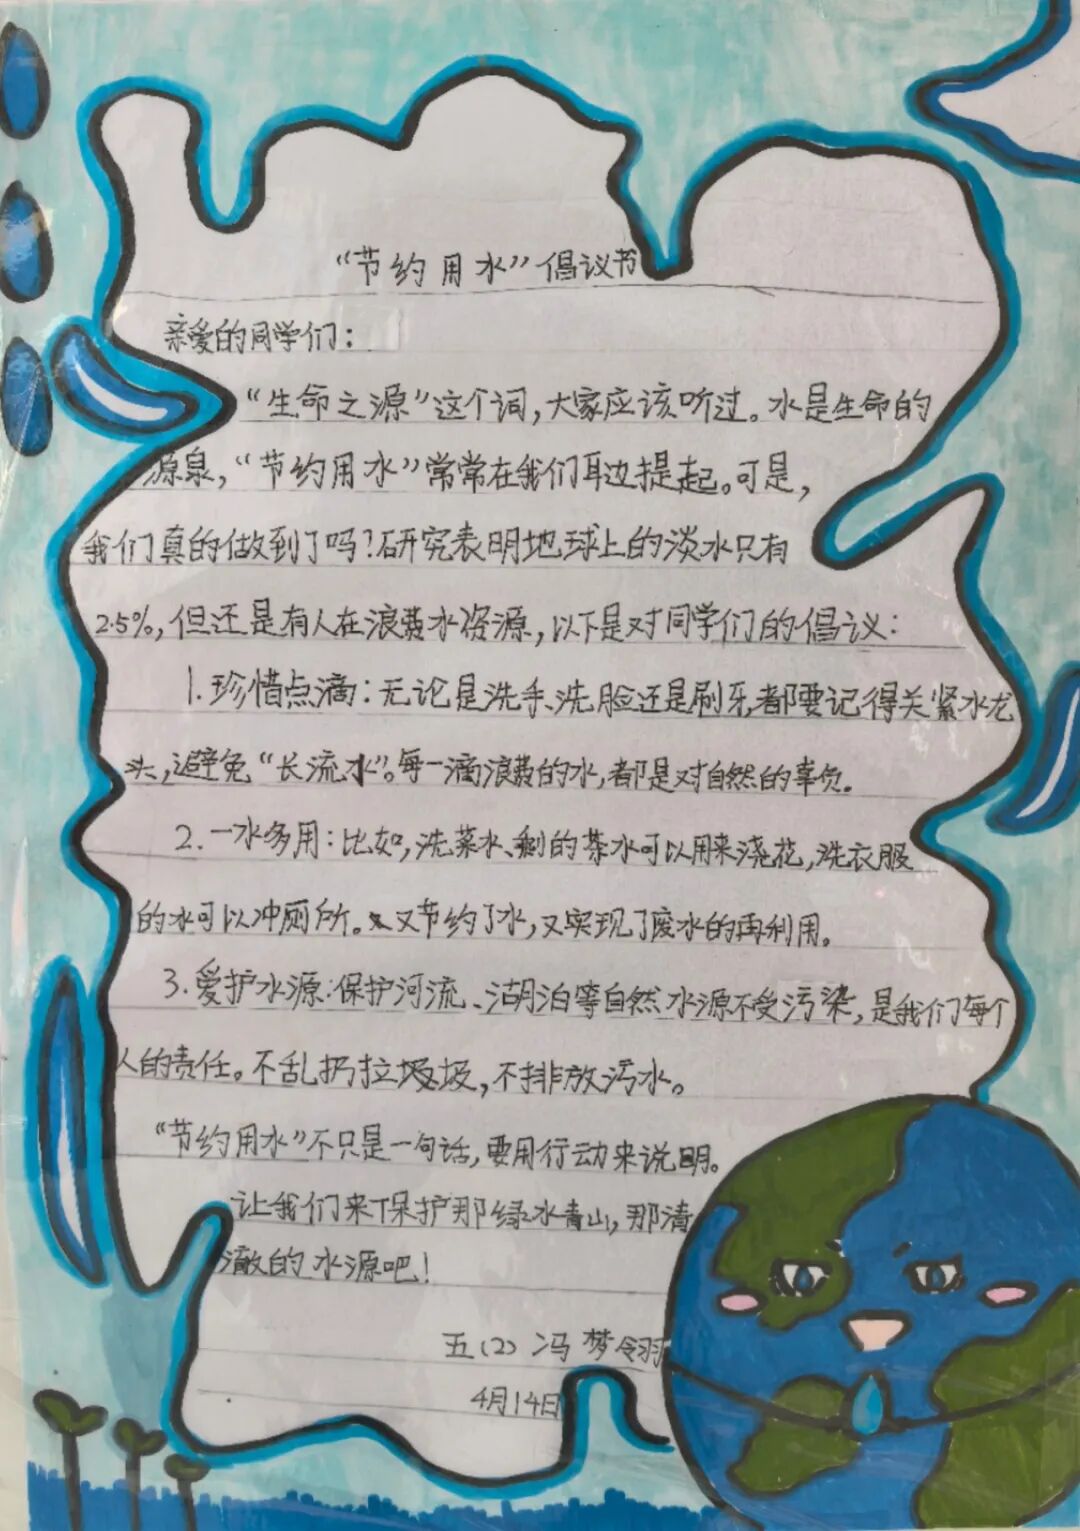 “节约用水”倡议书
亲爱的同学们：
“生命之源”这个词，大家应该听过。水是生命的
源泉，“节约用水”常常在我们耳边提起。可是，
我们真的做到了吗？研究表明地球上的淡水只有
2.5%，但还是有人在浪费水资源，以下是对同学们的倡议：
1.珍惜点滴：无论是洗手、洗脸还是刷牙，都要记得关紧水龙
头，避免“长流水”。每一滴浪费的水，都是对自然的辜负。
2.一水多用：比如，洗菜水、剩的茶水可以用来浇花，洗衣服
的水可以冲厕所。又节约了水，又实现了废水的再利用。
3.爱护水源：保护河流、湖泊等自然水源不受污染，是我们每个
人的责任。不乱扔垃圾，不排放污水。
“节约用水”不只是一句话，要用行动来说明。
让我们来保护那绿水青山，那清
澈的水源吧！
五（2） 冯梦翎
4月14日